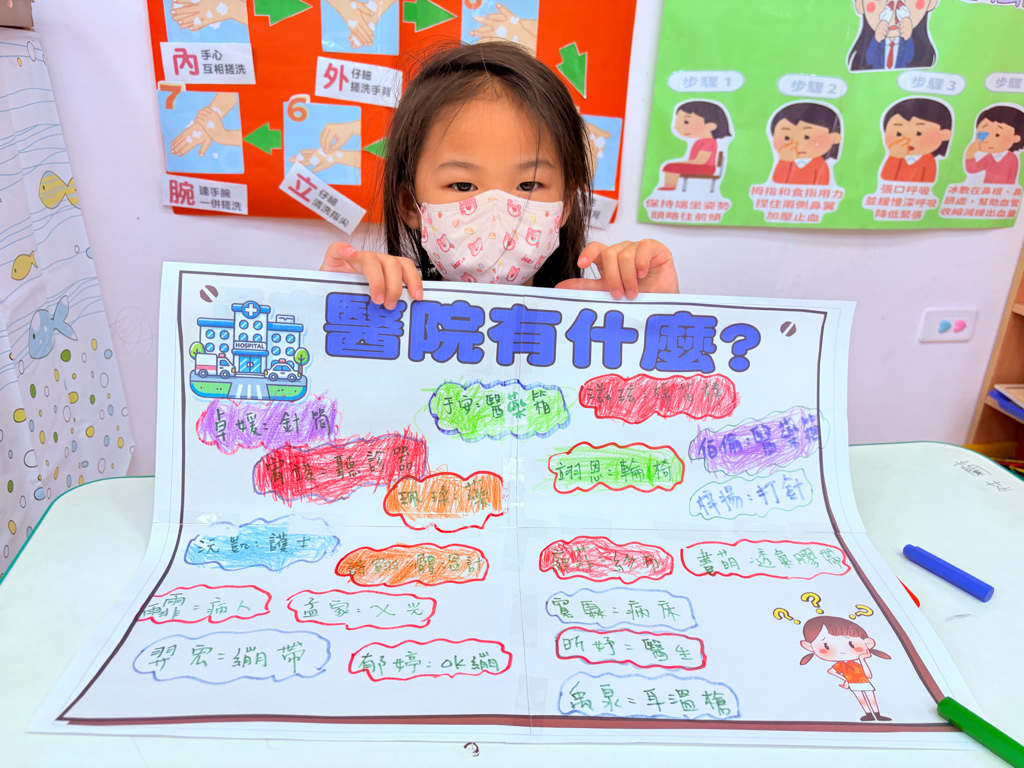 內 手心
互相搓洗
外 仔細
搓洗手背
7
6
腕 連手腕
一併搓洗
立 仔細
清洗指尖
步驟 1
步驟 2
步驟 3
步驟
保持端坐姿勢
頭略往前傾
拇指和食指用力
捏住兩側鼻翼
加壓止血
張口呼吸
並緩慢深呼吸
降低緊張
冰敷在鼻根、鼻
頭處，幫助血管
收縮減緩出血量
醫院有什麼?
HOSPITAL
卓媛:針筒
于安:醫藥箱
聽診器
翊恩:輪椅
伯侑:醫藥箱
打針
沅凱:護士
額溫計
紗布
書萌:透氣膠帶
霏:病人
孟家:X光
病床
羿宏:繃帶
郁婷:OK繃
昕妤:醫生
禹泉:耳溫槍